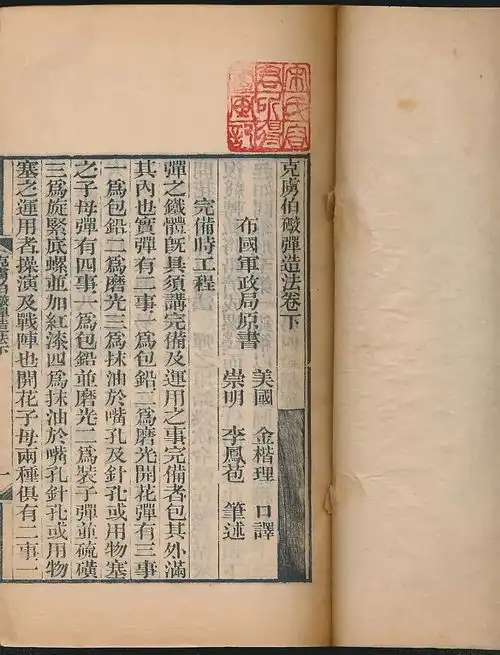 克虜伯礮彈造法卷下
美國 金楷理 口譯
布國軍政局原書
崇明 李鳳苞 筆述
完備時工程
彈之鐵體旣具須講完備及運用之事完備者包其外滿
其內也實彈有二事一爲包鉛二爲磨光開花彈有三事
一爲包鉛二爲磨光三爲抹油於嘴孔及針孔或用物塞
之子母彈有四事一爲包鉛並磨光二爲裝子彈並硫磺
三爲旋緊底螺並加紅漆四爲抹油於嘴孔針孔或用物
塞之運用者操演及戰陣也開花子母兩種俱有二事一
克虜伯礮彈造法下 一